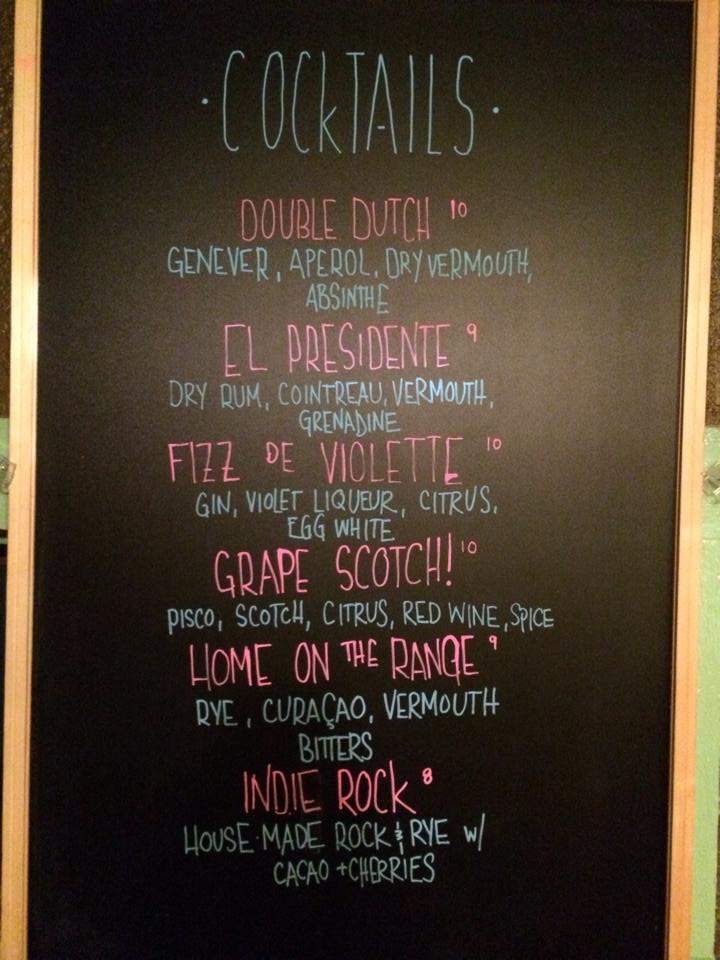 ·COCKTAILS·
DOUBLE DUTCH 10
GENEVER, APEROL, DRY VERMOUTH,
ABSINTHE
EL PRESIDENTE 9
DRY RUM, COINTREAU, VERMOUTH,
GRENADINE
FIZZ DE VIOLETTE 10
GIN, VIOLET LIQUEUR, CITRUS,
EGG WHITE
GRAPE SCOTCH! 10
PISCO, SCOTCH, CITRUS, RED WINE, SPICE
HOME ON THE RANGE 9
RYE, CURAÇAO, VERMOUTH
BITTERS
INDIE ROCK 8
HOUSE·MADE ROCK & RYE W/
CACAO + CHERRIES